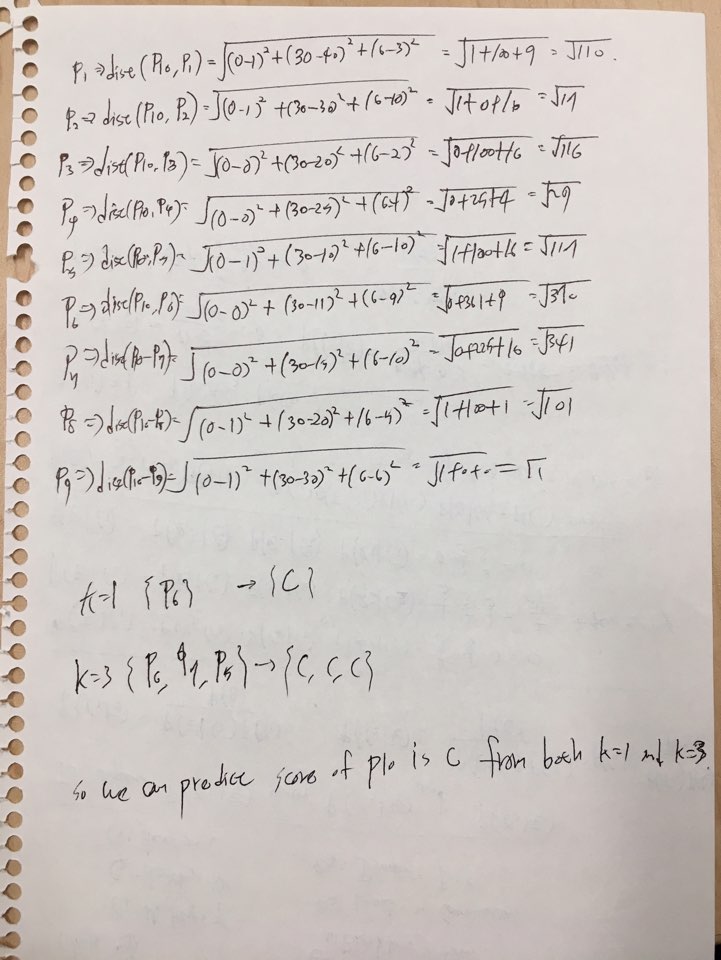 P₁ ⇒ dist(P₁₀, P₁) = √(0-1)² + (30-40)² + (6-3)² = √1+100+9 = √110.
P₂ ⇒ dist(P₁₀, P₂) = √(0-1)² + (30-30)² + (6-10)² = √1+0+16 = √17
P₃ ⇒ dist(P₁₀, P₃) = √(0-0)² + (30-20)² + (6-2)² = √0+100+16 = √116
P₄ ⇒ dist(P₁₀, P₄) = √(0-0)² + (30-25)² + (6-4)² = √0+25+4 = √29
P₅ ⇒ dist(P₁₀, P₅) = √(0-1)² + (30-10)² + (6-10)² = √1+100+16 = √117
P₆ ⇒ dist(P₁₀, P₆) = √(0-0)² + (30-11)² + (6-9)² = √0+361+9 = √370
P₇ ⇒ dist(P₁₀-P₇) = √(0-0)² + (30-15)² + (6-10)² = √0+225+16 = √341
P₈ ⇒ dist(P₁₀-P₈) = √(0-1)² + (30-20)² + (6-5)² = √1+100+1 = √101
P₉ ⇒ dist(P₁₀-P₉) = √(0-1)² + (30-30)² + (6-6)² = √1+0+0 = √1
k=1 {P₆} → {C}
k=3 {P₆, P₇, P₅} → {C, C, C}
so we can predict score of p10 is C from both k=1 and k=3.